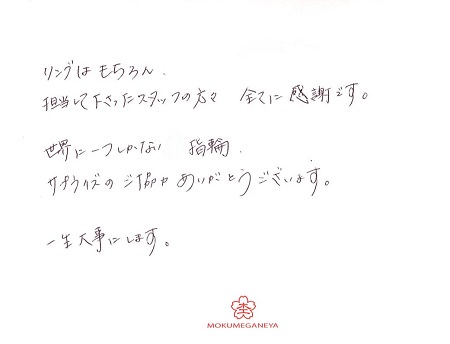 リングはもちろん、
担当して下さったスタッフの方々 全てに感謝です。
世界に一つしかない 指輪、
サプライズのご協力ありがとうございます。
一生大事にします。
MOKUMEGANEYA